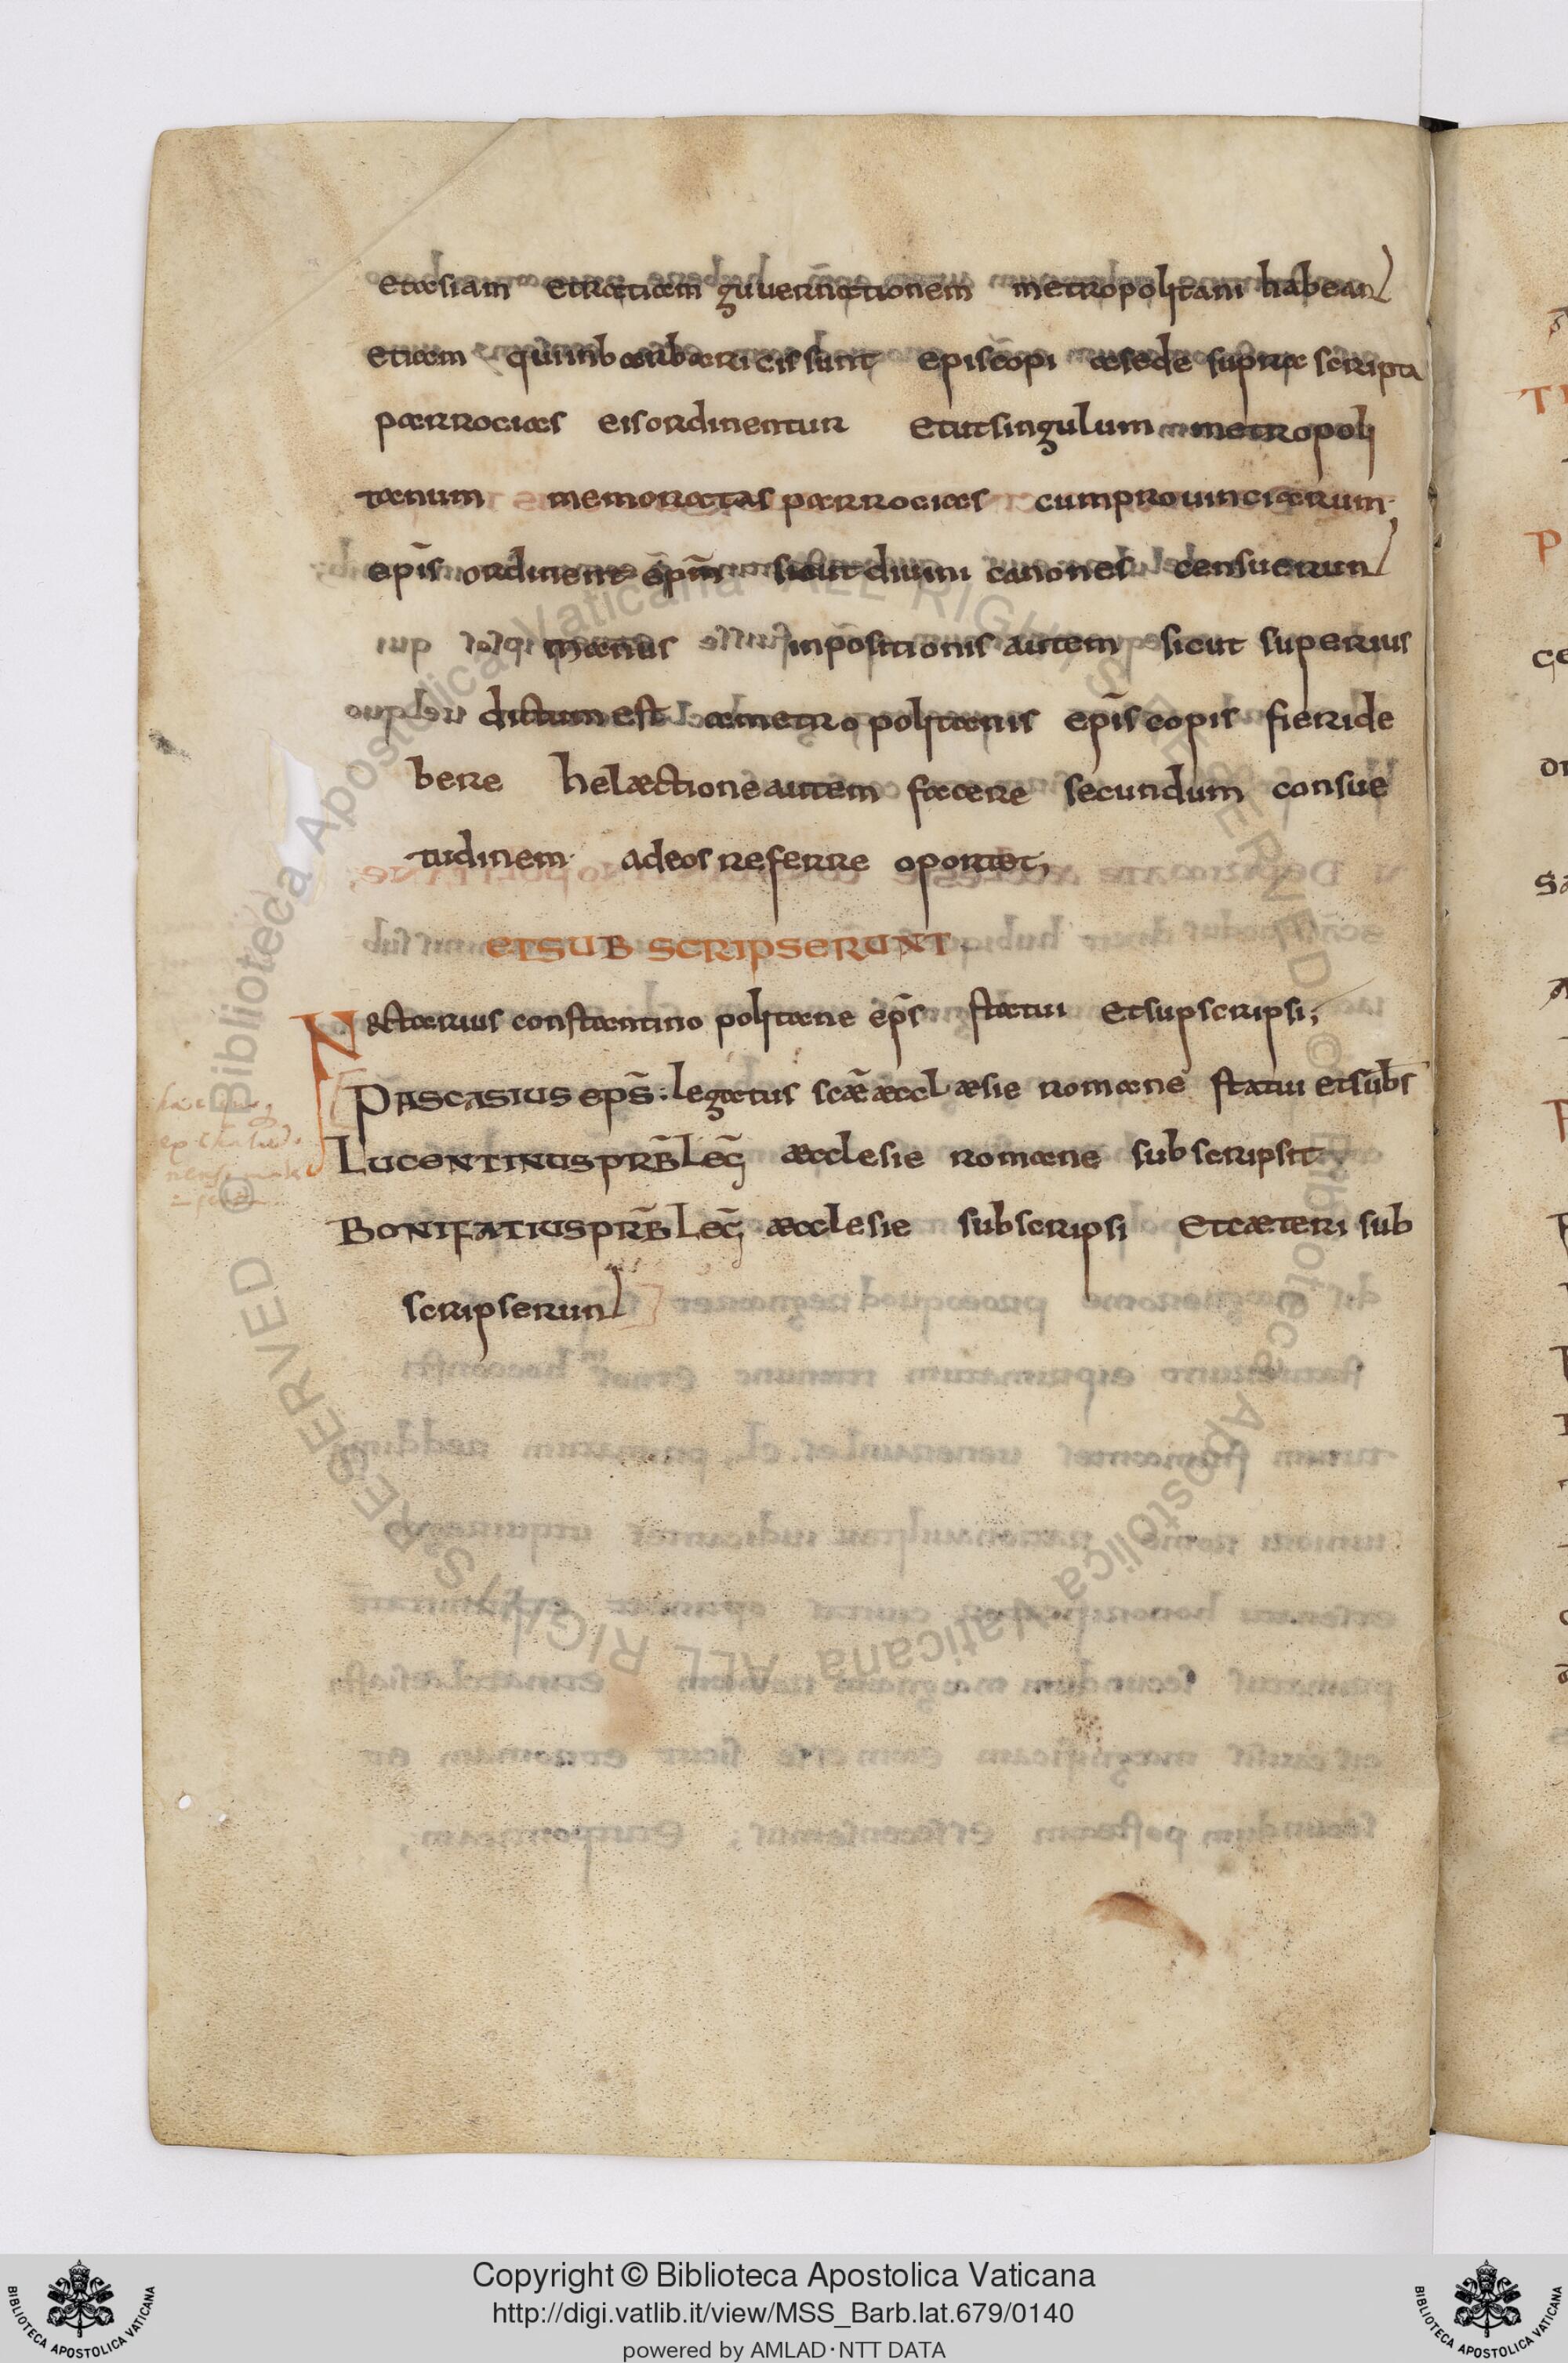 etasiam etratiam guuernationem metropolitani habeant
etiam qui inbarbaricis sunt episcopi asede supra scripta
parrocias eis ordinentur et ut singulum metropoli
tanum memoratas parrocias cum prouinciarum
ep̄is ordinent ep̄m sicut diuini canones censuerunt
manus inpositionis autem sicut superius
dictum est a metropolitanis ep̄iscopis fieri de
bere helæctione autem facere secundum consue
tudinem ad eos referre oportet;
ET SUB SCRIPSERUNT.
Nectarius constantino politane ep̄s statui et supscripsi;
PASCASIUS ep̄s: legatus scǣ æcclæsie romane statui et subs̄
LUCENTINUS PRB̄ LEḠ æcclesie romane subscripsit
BONIFATIUS PRB̄ LEḠ æcclesie subscripsi et cæteri sub
scripserunt
Copyright © Biblioteca Apostolica Vaticana
http://digi.vatlib.it/view/MSS_Barb.lat.679/0140
powered by AMLAD·NTT DATA
BIBLIOTECA APOSTOLICA VATICANA
BIBLIOTECA APOSTOLICA VATICANA
© Biblioteca Apostolica Vaticana ALL RIGHTS RESERVED © Biblioteca Apostolica Vaticana ALL RIGHTS RESERVED